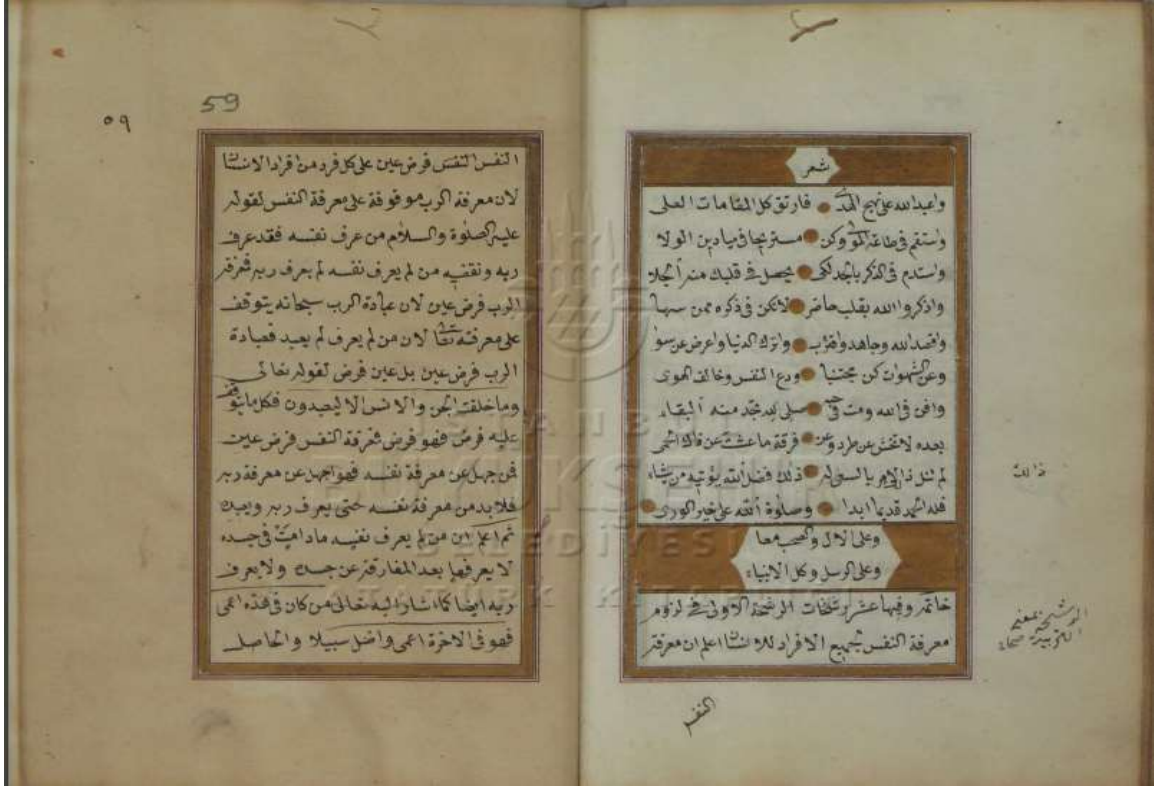 شعر
واعبد الله على نهج الهدى فارتق كل المقامات العلى
واستقم في طاعة المولى وكن مستريحا في ميادين الولا
واستدم في الذكر بالجد لكي يحصل في قلبك منه انجلا
واذكروا الله بقلب حاضر لا تكن في ذكره ممن سها
واقصد الله وجاهد واقترب واترك الدنيا واعرض عن سوا
وعن الشهوات كن مجتنبا ودع النفس وخالف الهوى
وافن في الله ومت في حبه صلى لله تجد منه البقاء
بعده لا تخش عن طرد وعن فرقة ما عشت عن ذاك الحمى
لم تنل ذا الامر بالسعي له ذلك فضل الله يؤتيه من يشاء
فله الحمد قديما ابدا وصلوة الله على خير الورى
وعلى الال والصحب معا
وعلى الرسل وكل الانبياء
خاتمة وفيها عشر رشحات الرشحة الاولى في لزوم
معرفة النفس لجميع الافراد للانسان اعلم ان معرفة
النفس
ذالك
59
٥٩
النفس النفس فرض عين على كل فرد من افراد الانسان
لان معرفة الرب موقوفة على معرفة النفس لقوله
عليه الصلوة والسلام من عرف نفسه فقد عرف
ربه ونقضيه من لم يعرف نفسه لم يعرف ربه فمعرفة
الرب فرض عين لان عبادة الرب سبحانه يتوقف
على معرفته تعا لان من لم يعرف لم يعبد فعبادة
الرب فرض عين بل عين فرض لقوله تعالى
وما خلقت الجن والانس الا ليعبدون فكل ما يتوقف
عليه فرض فهو فرض فمعرفة النفس فرض عين
فمن جهل عن معرفة نفسه فهو اجهل عن معرفة ربه
فلا بد من معرفة نفسه حتى يعرف ربه ويعبده
ثم اعلم ان من لم يعرف نفسه ما دامت في جسده
لا يعرفها بعد المفارقة عن جسده ولا يعرف
ربه ايضا كما اشار اليه تعالى من كان في هذه اعمى
فهو في الاخرة اعمى واضل سبيلا والحاصل
ISTANBUL
BÜYÜKŞEHİR
BELEDİYESİ
ATATÜRK KİTAPLIĞI